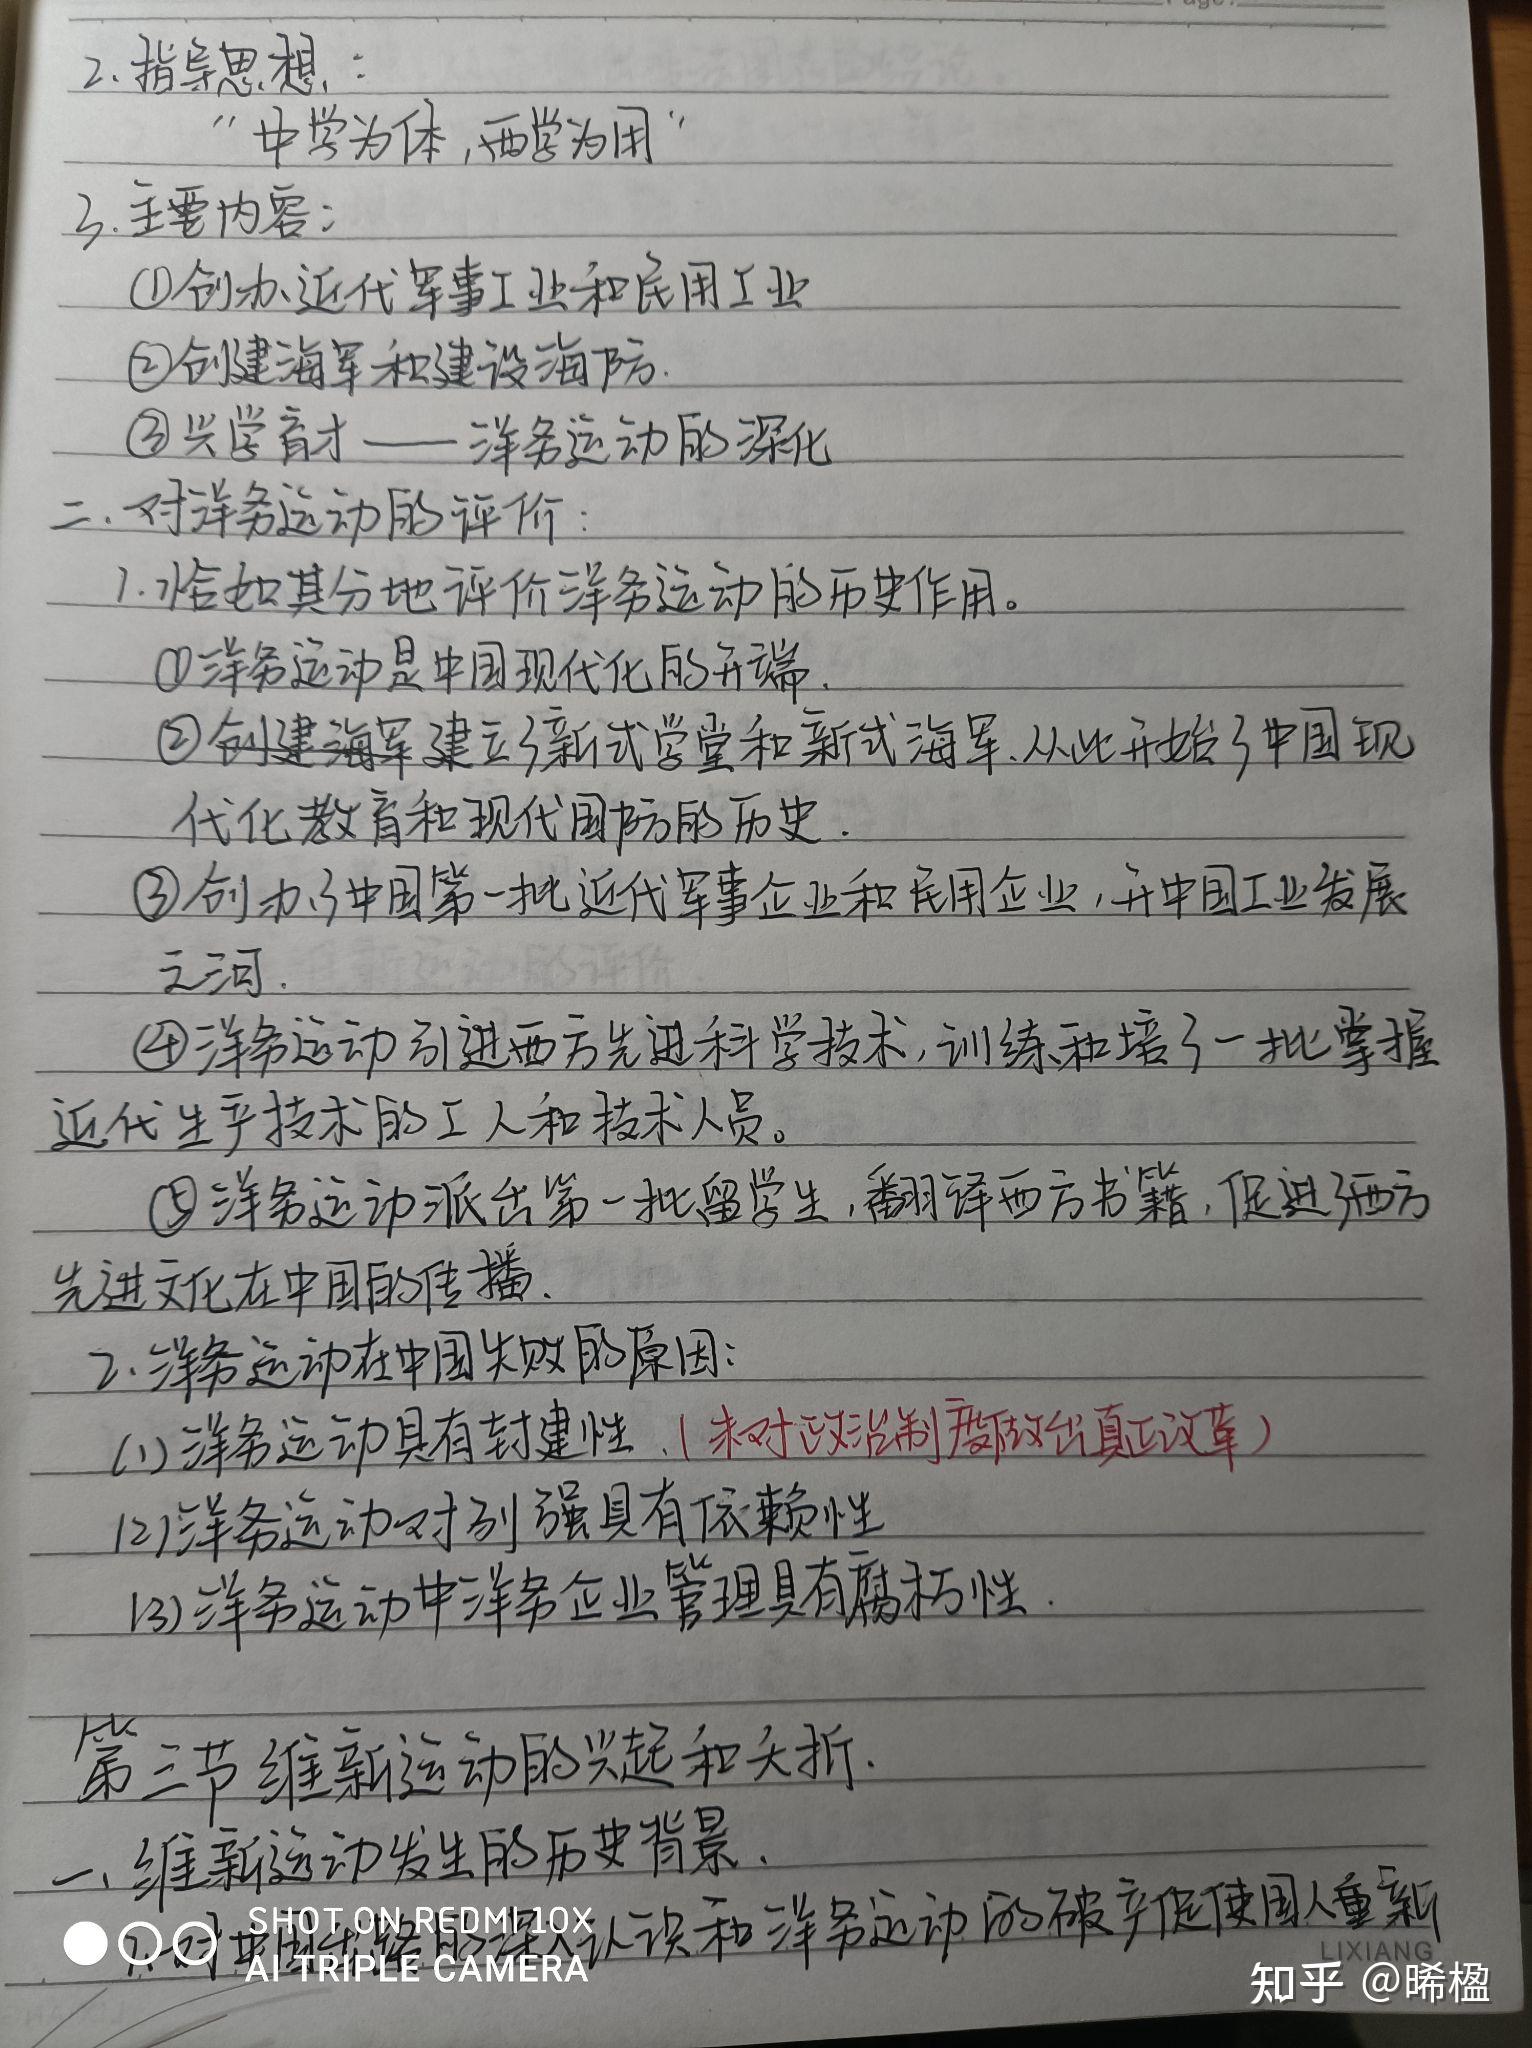 2.指导思想:
"中学为体,西学为用"
3.主要内容:
①创办近代军事工业和民用工业
②创建海军和建设海防.
③兴学育才——洋务运动的深化
二.对洋务运动的评价:
1.恰如其分地评价洋务运动的历史作用。
①洋务运动是中国现代化的开端.
②创建海军建立了新式学堂和新式海军.从此开始了中国现
代化教育和现代国防的历史.
③创办了中国第一批近代军事企业和民用企业,开中国工业发展
之河.
④洋务运动引进西方先进科学技术,训练和培了一批掌握
近代生产技术的工人和技术人员。
⑤洋务运动派出第一批留学生,翻译西方书籍,促进了西方
先进文化在中国的传播.
2.洋务运动在中国失败的原因:
(1)洋务运动具有封建性.(未对政治制度做出真正改革)
(2)洋务运动对列强具有依赖性
(3)洋务运动中洋务企业管理具有腐朽性.
第三节 维新运动的兴起和夭折.
一、维新运动发生的历史背景.
1.对中国的深入认识和洋务运动的破产促使国人重新
SHOT ON REDMI 10X
AI TRIPLE CAMERA
LIXIANG
知乎 @晞楹